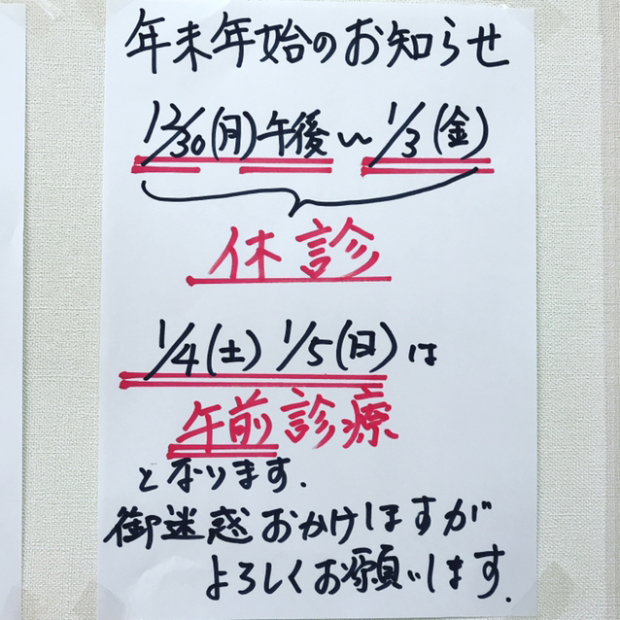 年末年始のお知らせ
12/30(月)午後〜1/3(金)
休診
1/4(土) 1/5(日)は
午前診療
となります.
御迷惑おかけしますが
よろしくお願いします.